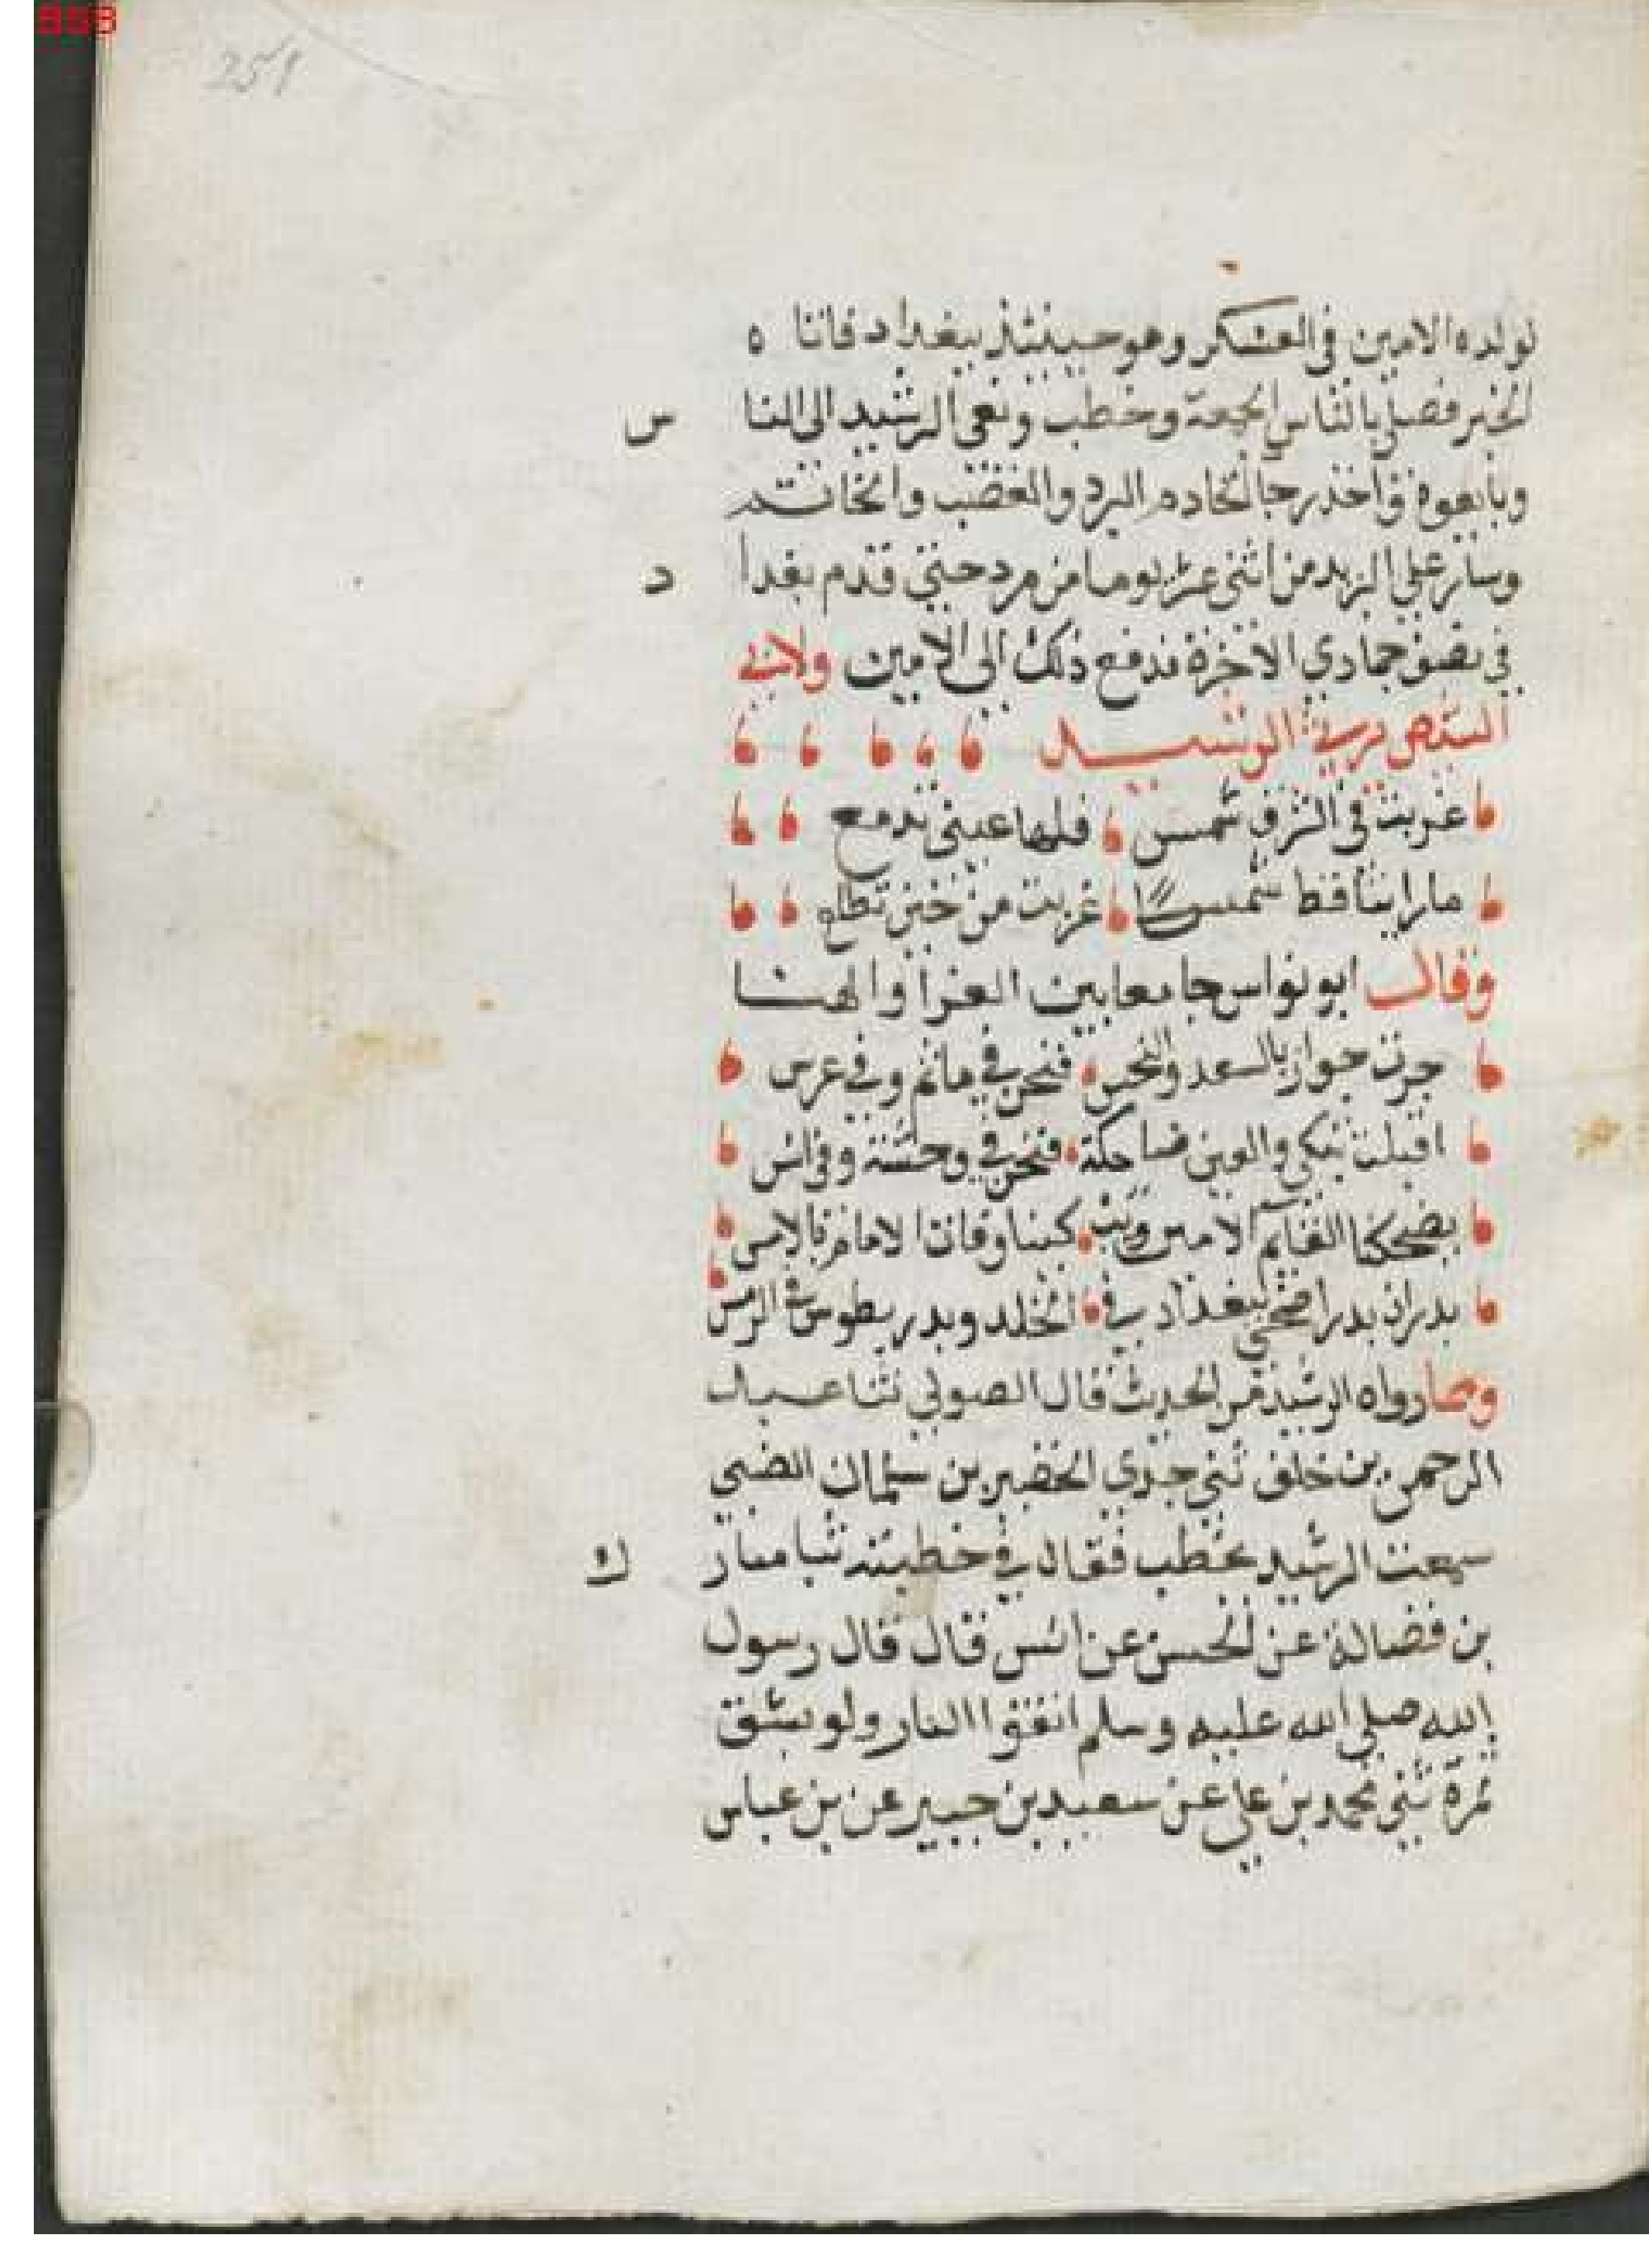 251
لولده الامين في العسكر وهو حينئذ ببغداد فاتا ه
الخبر فصلى بالناس الجمعة وخطب ونعى الرشيد الى النا س
وبايعوه واخذ رجا الخادم البرد والقضب والخاتم
وسار على البريد من اثني عشر يوما من مرو حتى قدم بغدا د
في نصف جمادي الاخرة فدفع ذلك الى الامين ولابي
الشيص يرثي الرشيد
غربت في الشرق شمس فلها عيني تدمع
ما راينا قط شمسا غربت من حيث تطلع
وقال ابو نواس جامعا بين العزا والهنا
جرت جوار بالسعد والنحس فنحن في ماتم وفي عرس
اقبلت تبكي والعين ضاحكة فنحن في وحشة وفي انس
يضحكنا القائم الامين وتب كينا وفات الامام بالامس
بدران بدر اضحى ببغداد في الخلد وبدر بطوس في الرمس
ومما رواه الرشيد من الحديث قال الصولي ثنا عبد
الرحمن بن خلف ثني جدي الحضير بن سليمان الضبي
سمعت الرشيد يخطب فقال في خطبته ثنا مبار ك
بن فضالة عن الحسن عن انس قال قال رسول
الله صلى الله عليه وسلم اتقوا النار ولو بشق
تمرة ثني محمد بن علي عن سعيد بن جبير عن بن عباس